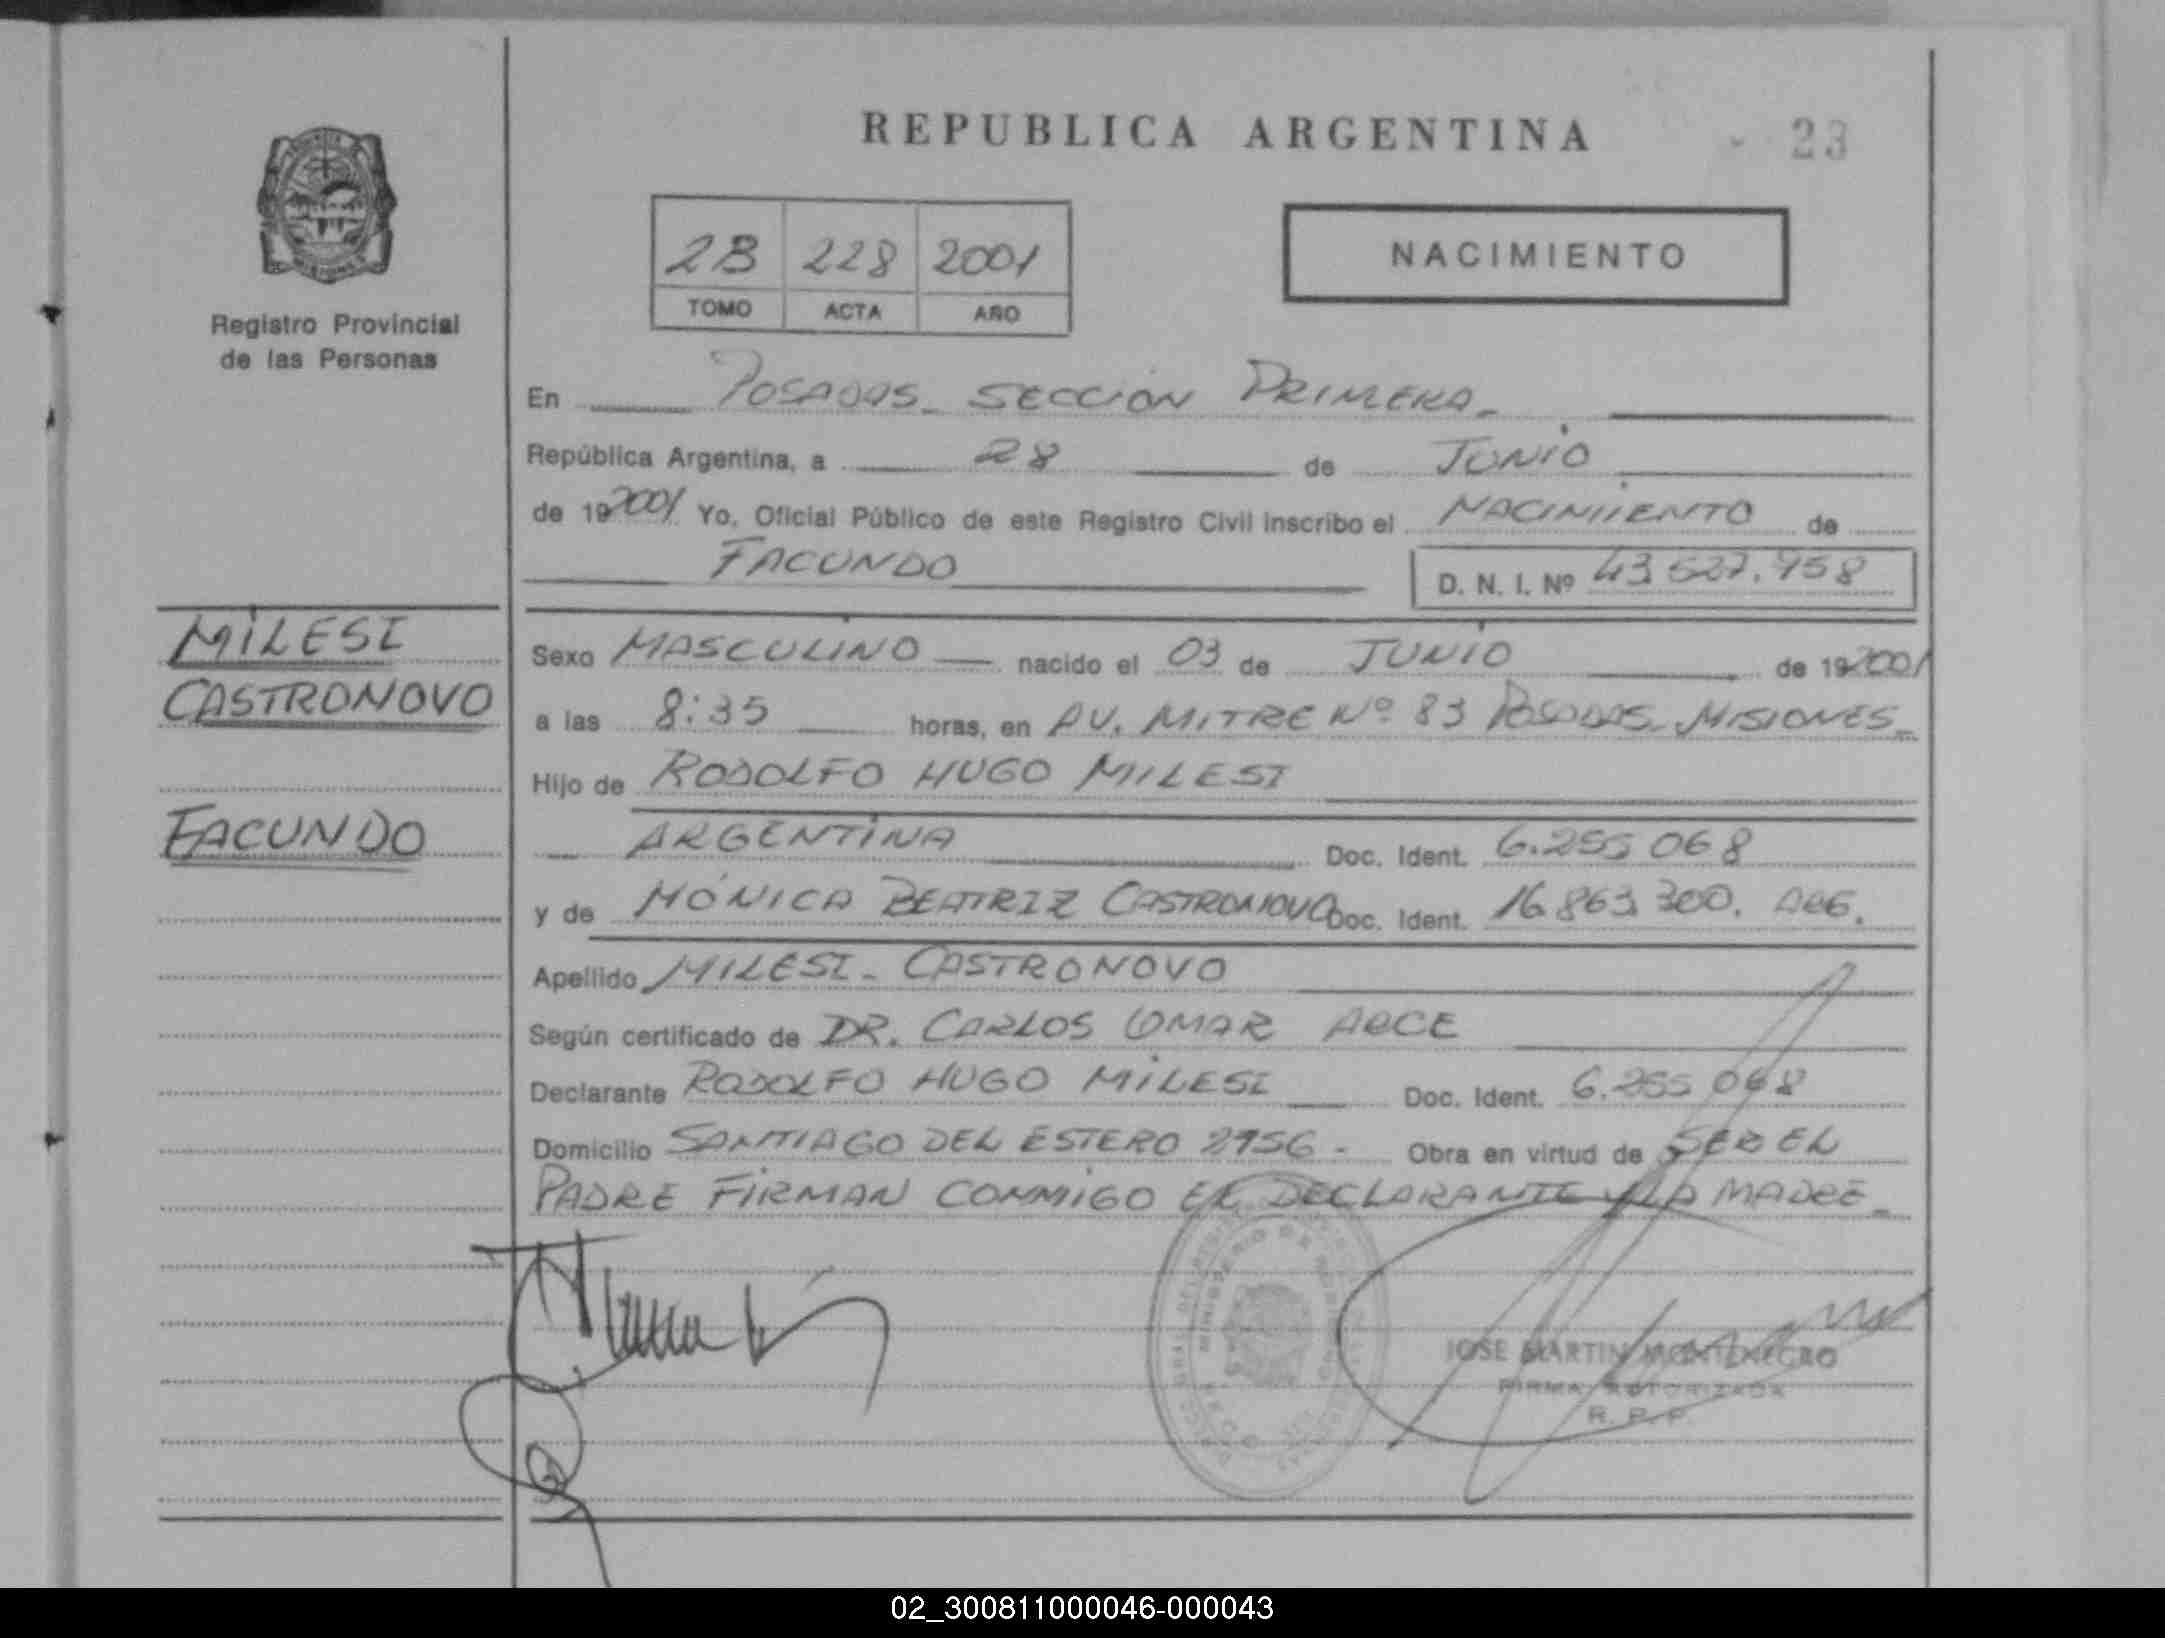 REPUBLICA ARGENTINA
23
2B 228 2001
TOMO ACTA AÑO
NACIMIENTO
MISIONES
Registro Provincial
de las Personas
En POSADAS - SECCIÓN PRIMERA -
República Argentina, a 28 de JUNIO
de 192001 Yo, Oficial Público de este Registro Civil inscribo el NACIMIENTO de
FACUNDO D. N. I. Nº 43.527.958
MILESI
CASTRONOVO
FACUNDO
Sexo MASCULINO nacido el 03 de JUNIO de 192001
a las 8:35 horas, en AV. MITRE Nº 83 POSADAS - MISIONES -
Hijo de RODOLFO HUGO MILESI
ARGENTINA Doc. Ident. 6.255 068
y de MÓNICA BEATRIZ CASTRONOVO Doc. Ident. 16.863.300. ARG.
Apellido MILESI - CASTRONOVO
Según certificado de DR. CARLOS OMAR ARCE
Declarante RODOLFO HUGO MILESI Doc. Ident. 6.255 068
Domicilio SANTIAGO DEL ESTERO 2956 - Obra en virtud de SER EL
PADRE FIRMAN CONMIGO EL DECLARANTE Y LA MADRE -
JOSE MARTIN MONTENEGRO
FIRMA AUTORIZADA
R. P. P.
02_300811000046-000043